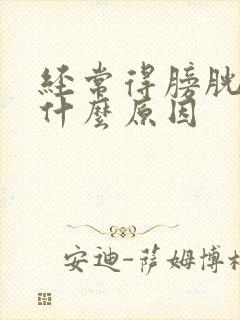 经常得膀胱
什麼原因
安迪-萨姆博